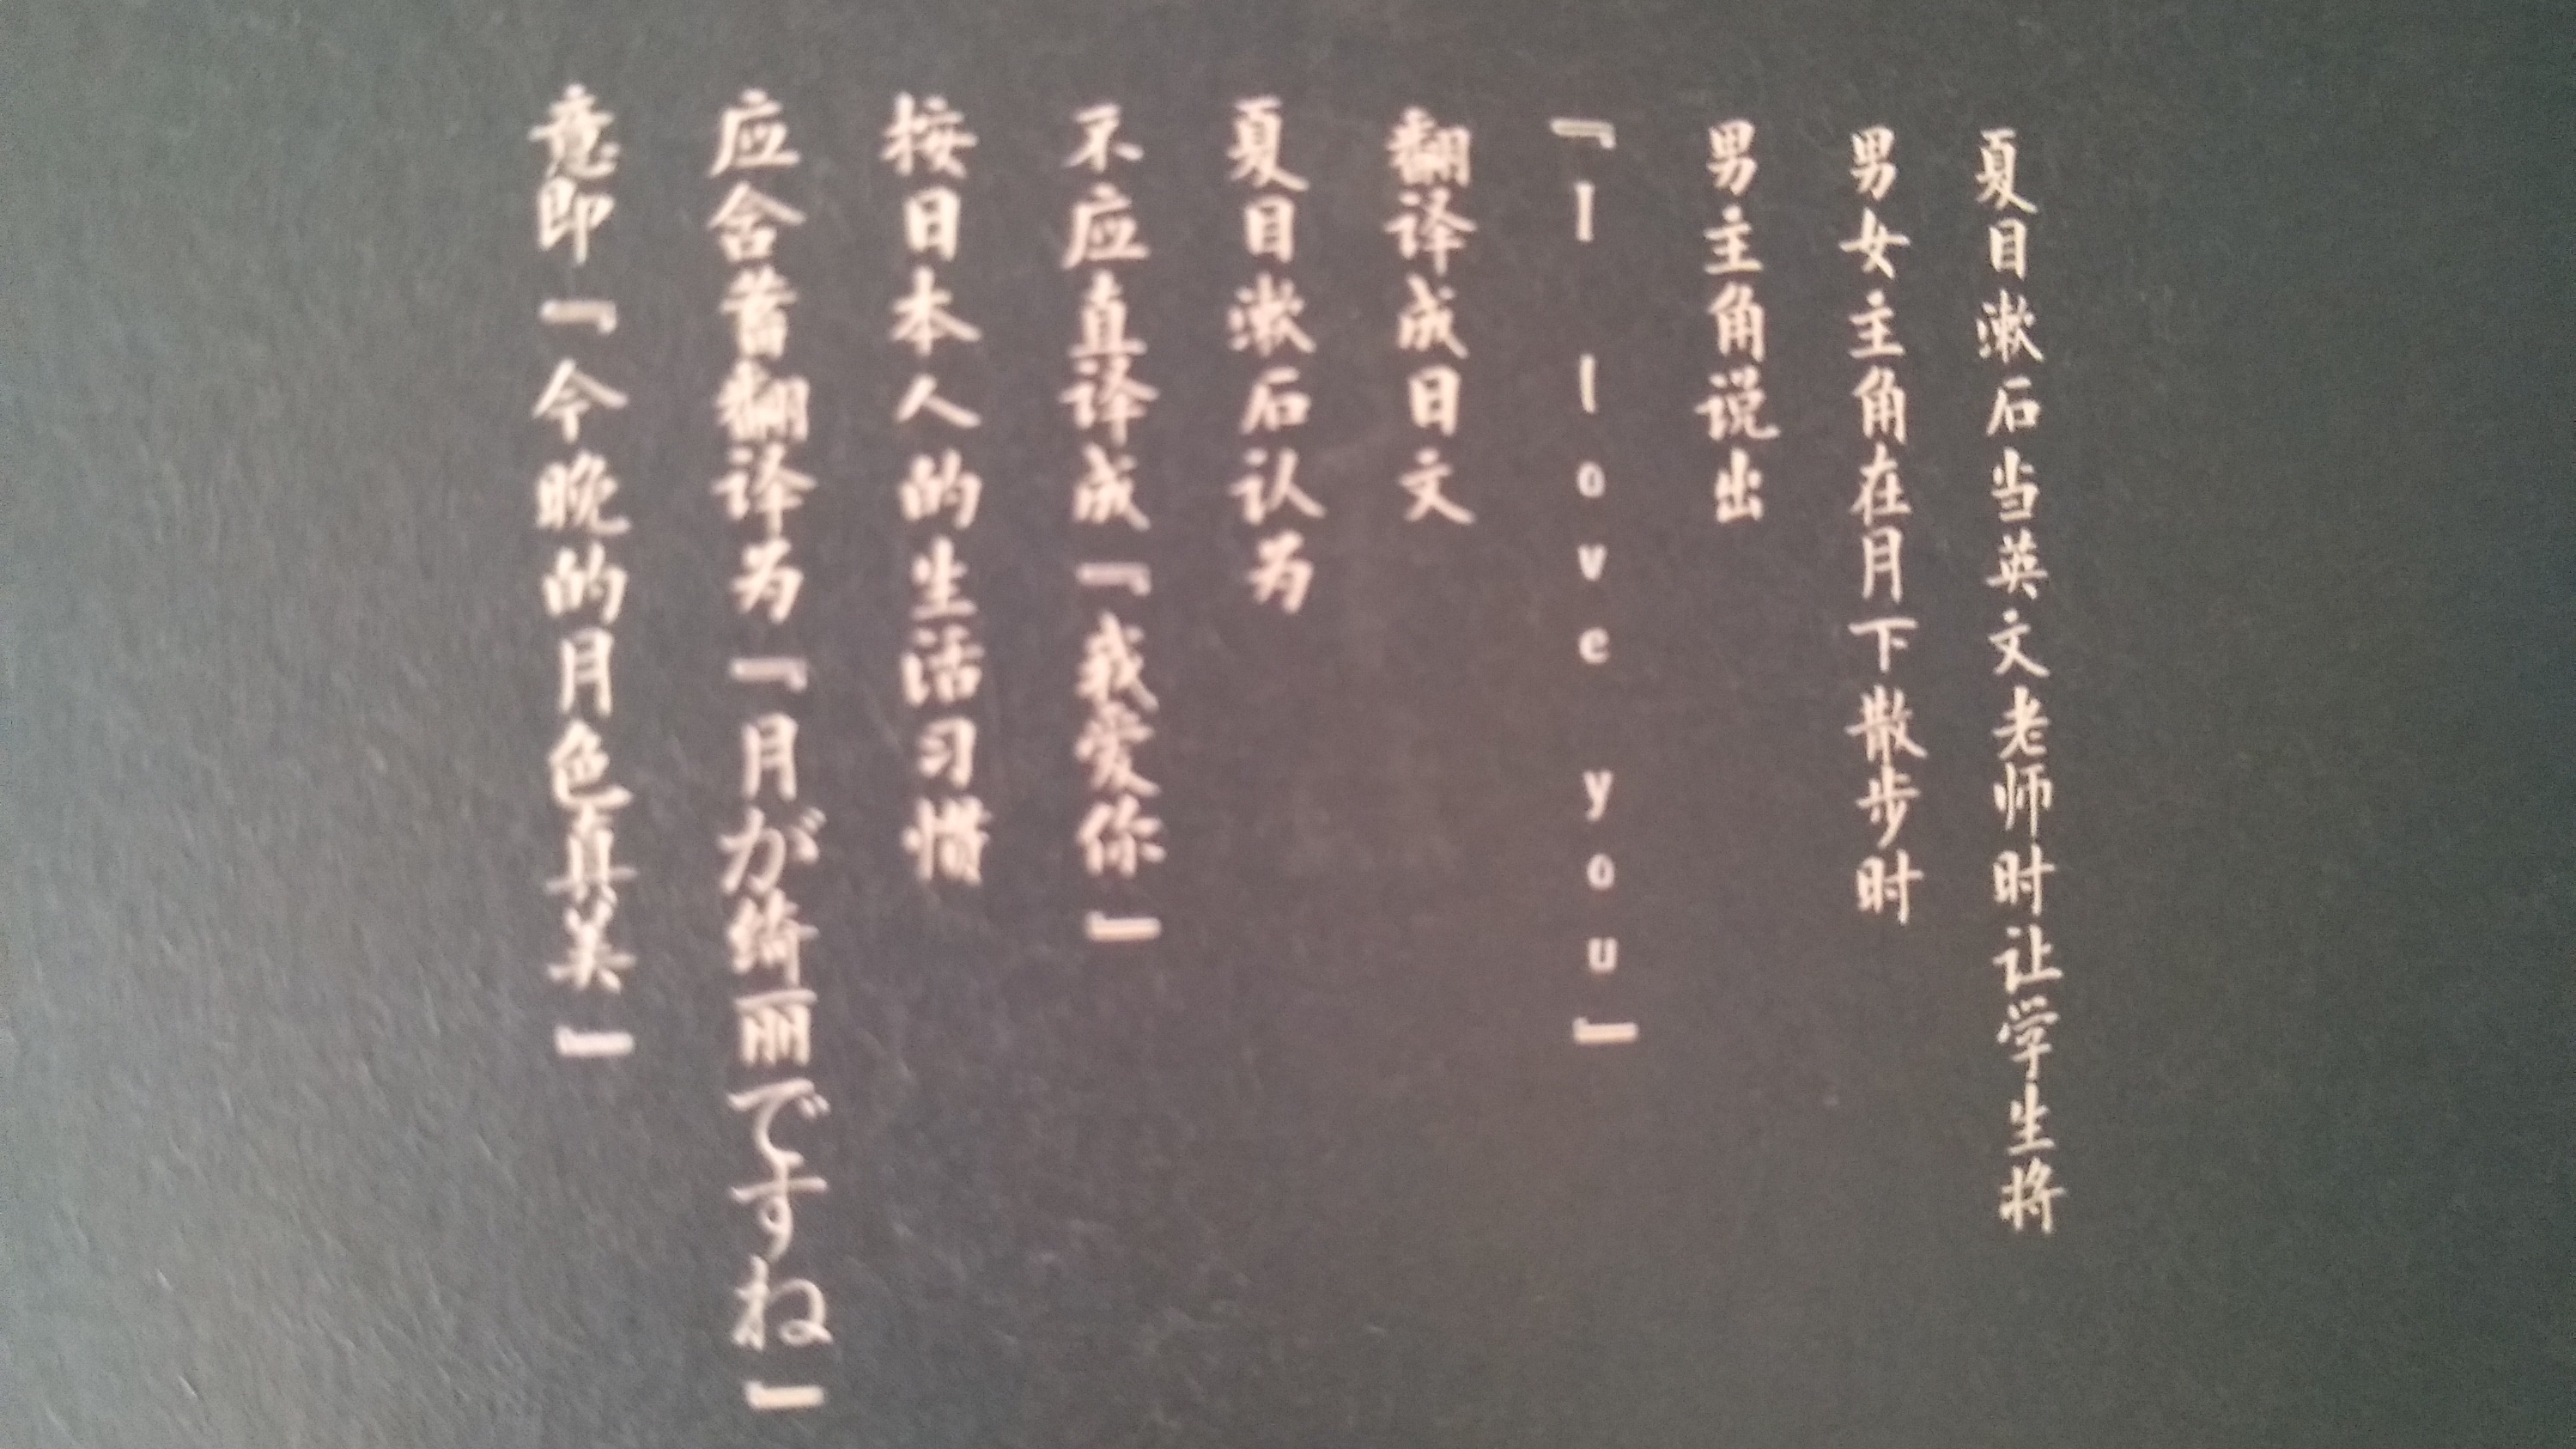 夏目漱石当英文老师时让学生将
男女主角在月下散步时
男主角说出
「I love you」
翻译成日文
夏目漱石认为
不应直译成「我爱你」
按日本人的生活习惯
应含蓄翻译为「月が綺丽ですね」
意即「今晚的月色真美」